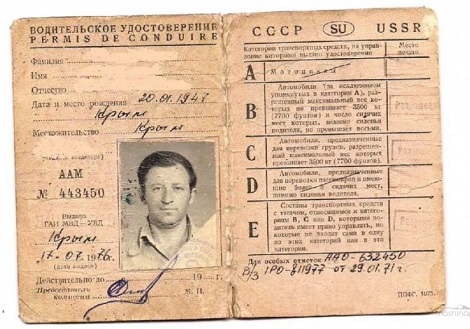 ВОДИТЕЛЬСКОЕ УДОСТОВЕРЕНИЕ
PERMIS DE CONDUIRE
Фамилия
Имя
Отчество
Дата и место рождения 20.01.1947
Крым
Местожительство Крым
ААМ
№ 443450
Выдано
ГАИ МВД—УВД
Крым
17.07.1976
Действительно до 19 г.
Председатель комиссии
М. П.
СССР SU USSR
Категории транспортных средств, на управление которыми выдано удостоверение
Место печати
A Мотоциклы
B
Автомобили (за исключением упомянутых в категории А), разрешенный максимальный вес которых не превышает 3500 кг (7700 фунтов) и число сидячих мест которых, помимо сиденья водителя, не превышает восьми.
C
Автомобили, предназначенные для перевозки грузов, разрешенный максимальный вес которых превышает 3500 кг (7700 фунтов)
D
Автомобили, предназначенные для перевозки пассажиров и имеющие более 8 сидячих мест, помимо сиденья водителя.
E
Составы транспортных средств с тягачом, относящимся к категориям B, C или D, которыми водитель имеет право управлять, но которые не входят сами в одну из этих категорий или в эти категории.
Для особых отметок ААО-632450
В/З 1РО-811977 от 29.01.71г.